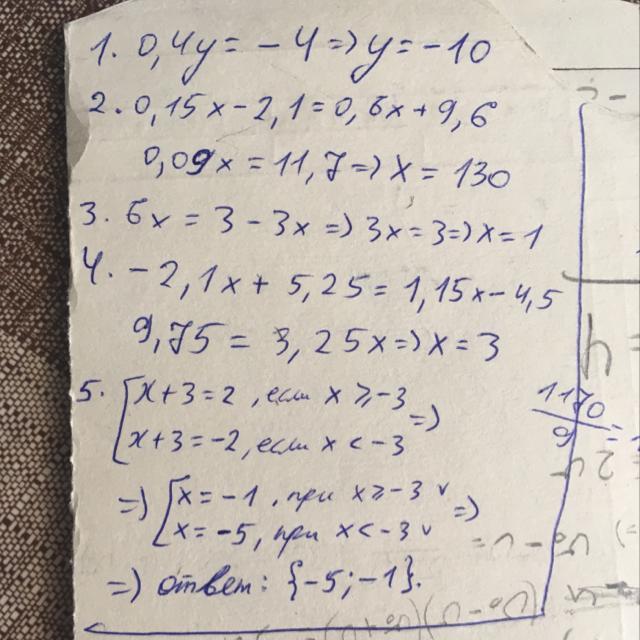 1. 0,4y = -4 => y = -10
2. 0,15x - 2,1 = 0,6x + 9,6
0,09x = 11,7 => x = 130
3. 6x = 3 - 3x => 3x = 3 => x = 1
4. -2,1x + 5,25 = 1,15x - 4,5
9,75 = 3,25x => x = 3
5. [ x + 3 = 2, если x ≥ -3
x + 3 = -2, если x < -3 =>
=> [ x = -1, при x ≥ -3 v
x = -5, при x < -3 v =>
=> ответ: {-5; -1}.
1170
9